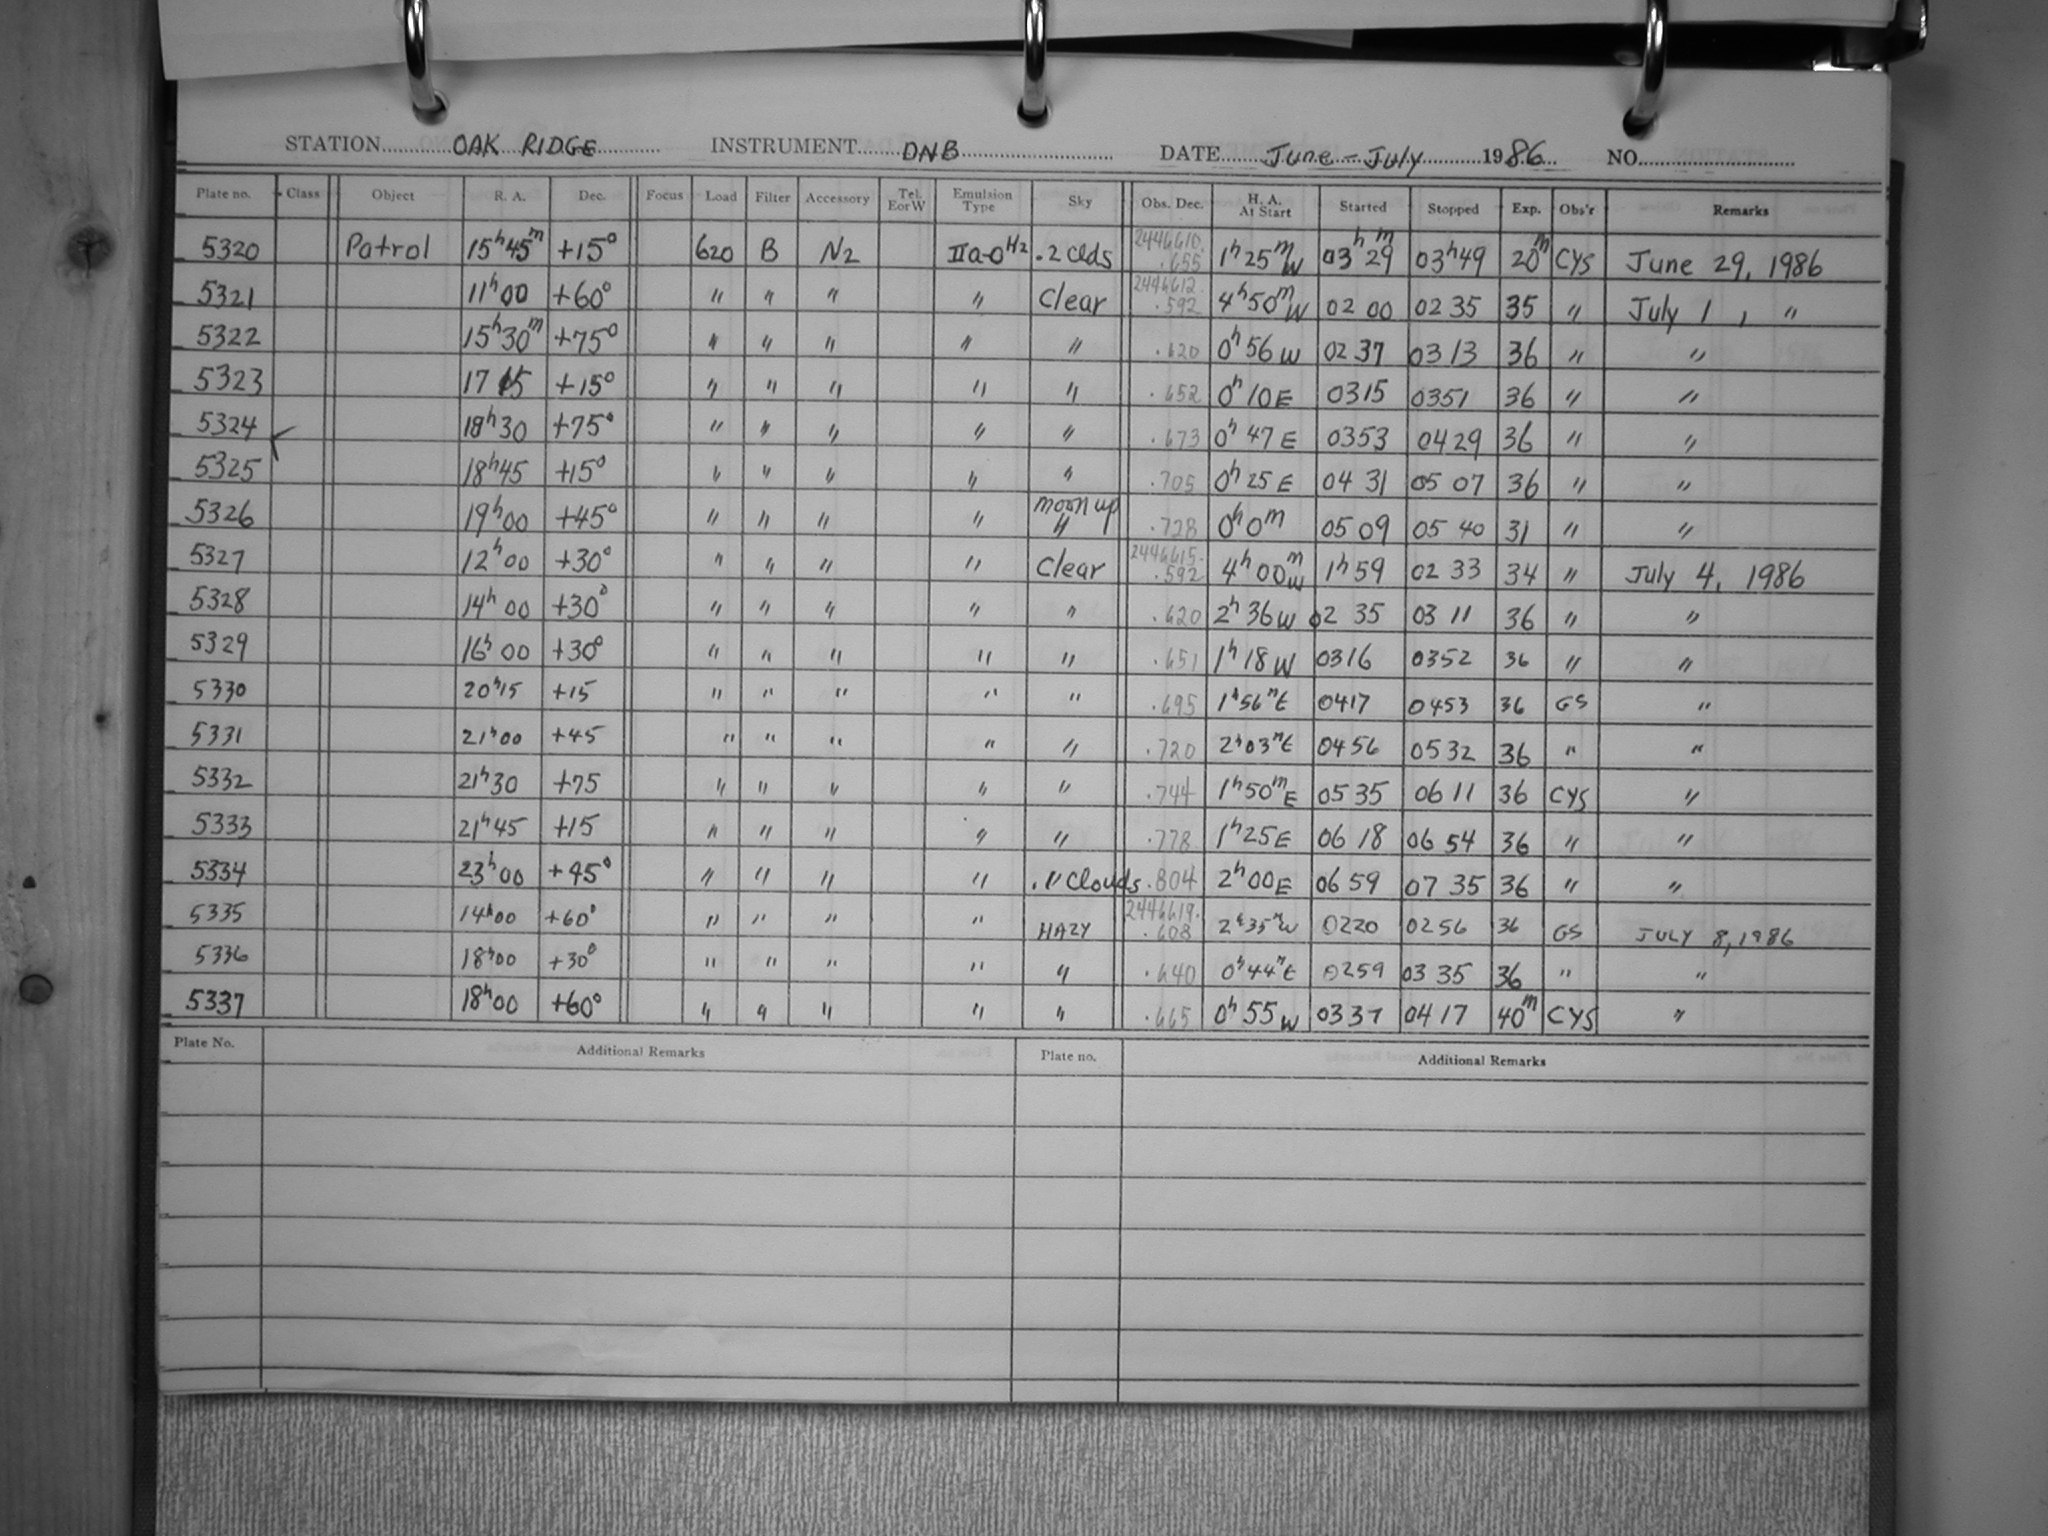 STATION OAK RIDGE INSTRUMENT DNB DATE June-July 1986 NO.
Plate no. Class Object R. A. Dec. Focus Load Filter Accessory Tel. E or W Emulsion Type Sky Obs. Dec. H. A. At Start Started Stopped Exp. Obs'r Remarks
5320 Patrol 15h45m +15° 620 B N2 IIa-O H2 .2 clds 2446610.655 1h25mW 03h29m 03h49 20m CYS June 29, 1986
5321 11h00 +60° " " " " Clear 2446612.592 4h50mW 02 00 02 35 35 " July 1, "
5322 15h30m +75° " " " " " .620 0h56W 02 37 03 13 36 " "
5323 17 15 +15° " " " " " .652 0h10E 0315 0351 36 " "
5324 18h30 +75° " " " " " .673 0h47E 0353 0429 36 " "
5325 18h45 +15° " " " " " .705 0h25E 04 31 05 07 36 " "
5326 19h00 +45° " " " " moon up " .728 0h0m 05 09 05 40 31 " "
5327 12h00 +30° " " " " Clear 2446615.592 4h00mW 1h59 02 33 34 " July 4, 1986
5328 14h00 +30° " " " " " .620 2h36W 02 35 03 11 36 " "
5329 16h00 +30° " " " " " .651 1h18W 0316 0352 36 " "
5330 20h15 +15 " " " " " .695 1h56mE 0417 0453 36 GS "
5331 21h00 +45 " " " " " .720 2h03mE 0456 0532 36 " "
5332 21h30 +75 " " " " " .744 1h50mE 05 35 06 11 36 CYS "
5333 21h45 +15 " " " " " .778 1h25E 06 18 06 54 36 " "
5334 23h00 +45° " " " " Clouds .804 2h00E 06 59 07 35 36 " "
5335 14h00 +60° " " " " HAZY 2446619.608 2h35mW 0220 0256 36 GS JULY 8, 1986
5336 18h00 +30° " " " " " .640 0h44mE 0259 03 35 36 " "
5337 18h00 +60° " " " " " .665 0h55W 0337 0417 40m CYS "
Plate No. Additional Remarks Plate no. Additional Remarks